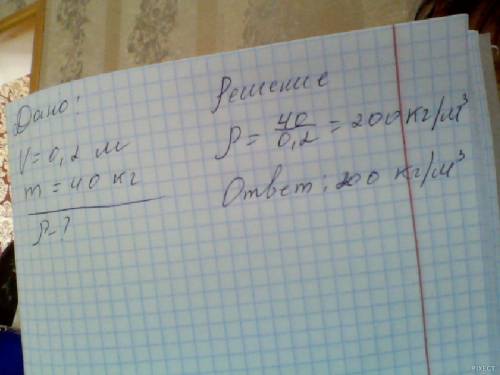 Дано:
V = 0,2 м
m = 40 кг
ρ - ?
Решение
ρ = 40/0,2 = 200 кг/м³
Ответ: 200 кг/м³
PIXECT